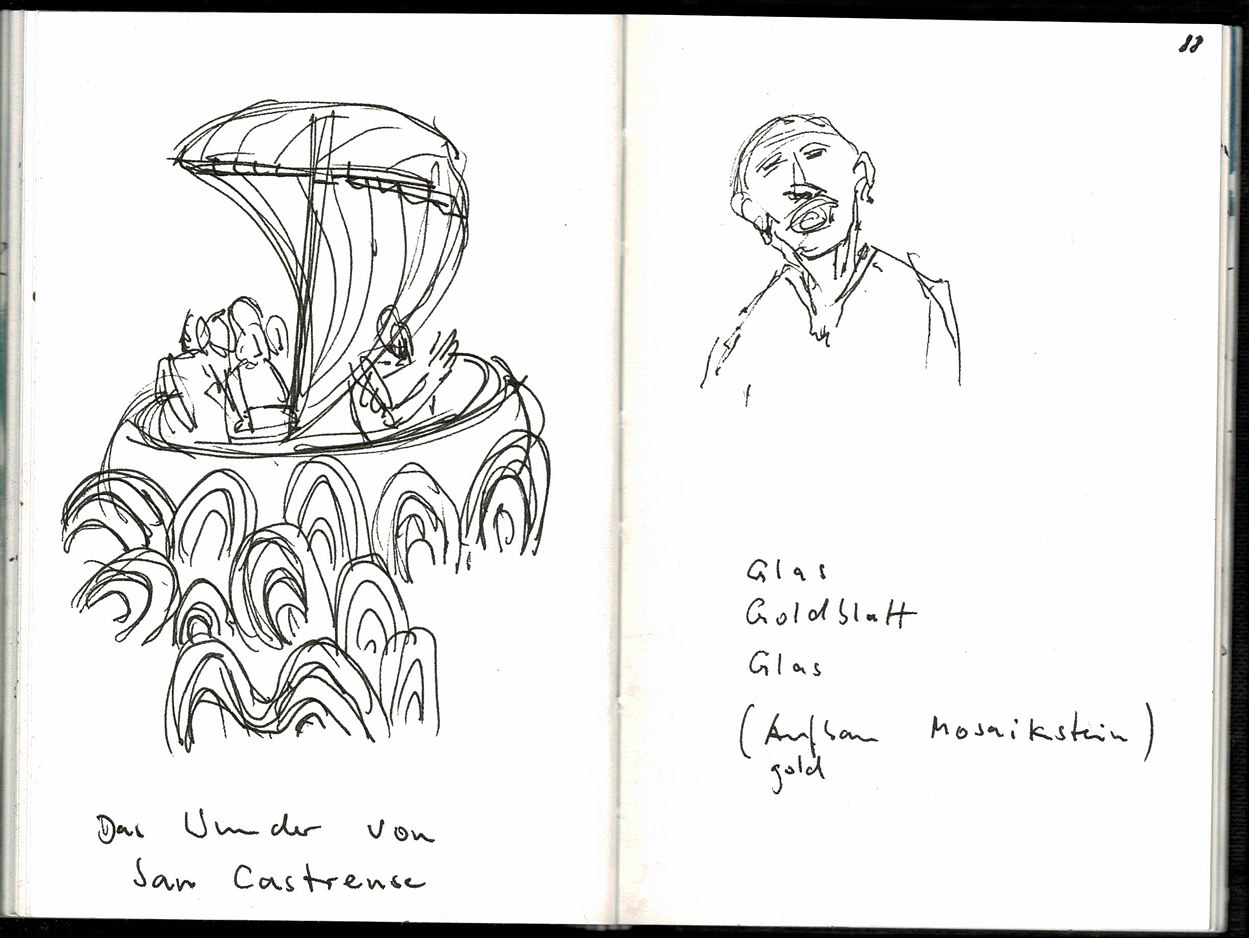 Das Wunder von
San Castrense
88
Glas
Goldblatt
Glas
(Aufbau Mosaikstein)
gold